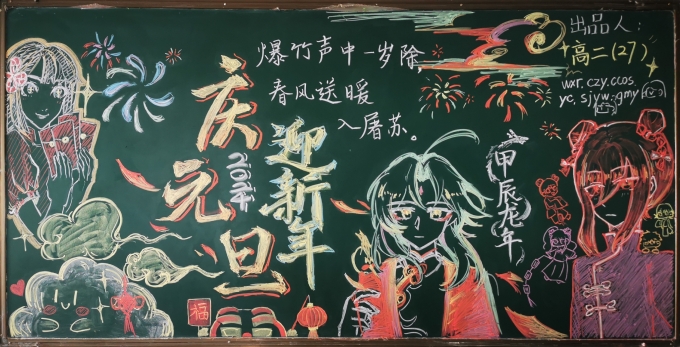 爆竹声中一岁除,
春风送暖
入屠苏。
庆元旦
2024
迎新年
甲辰龙年
出品人:
高二(27)
wxr.czy.ccos
yc,sjyw.gmy
福